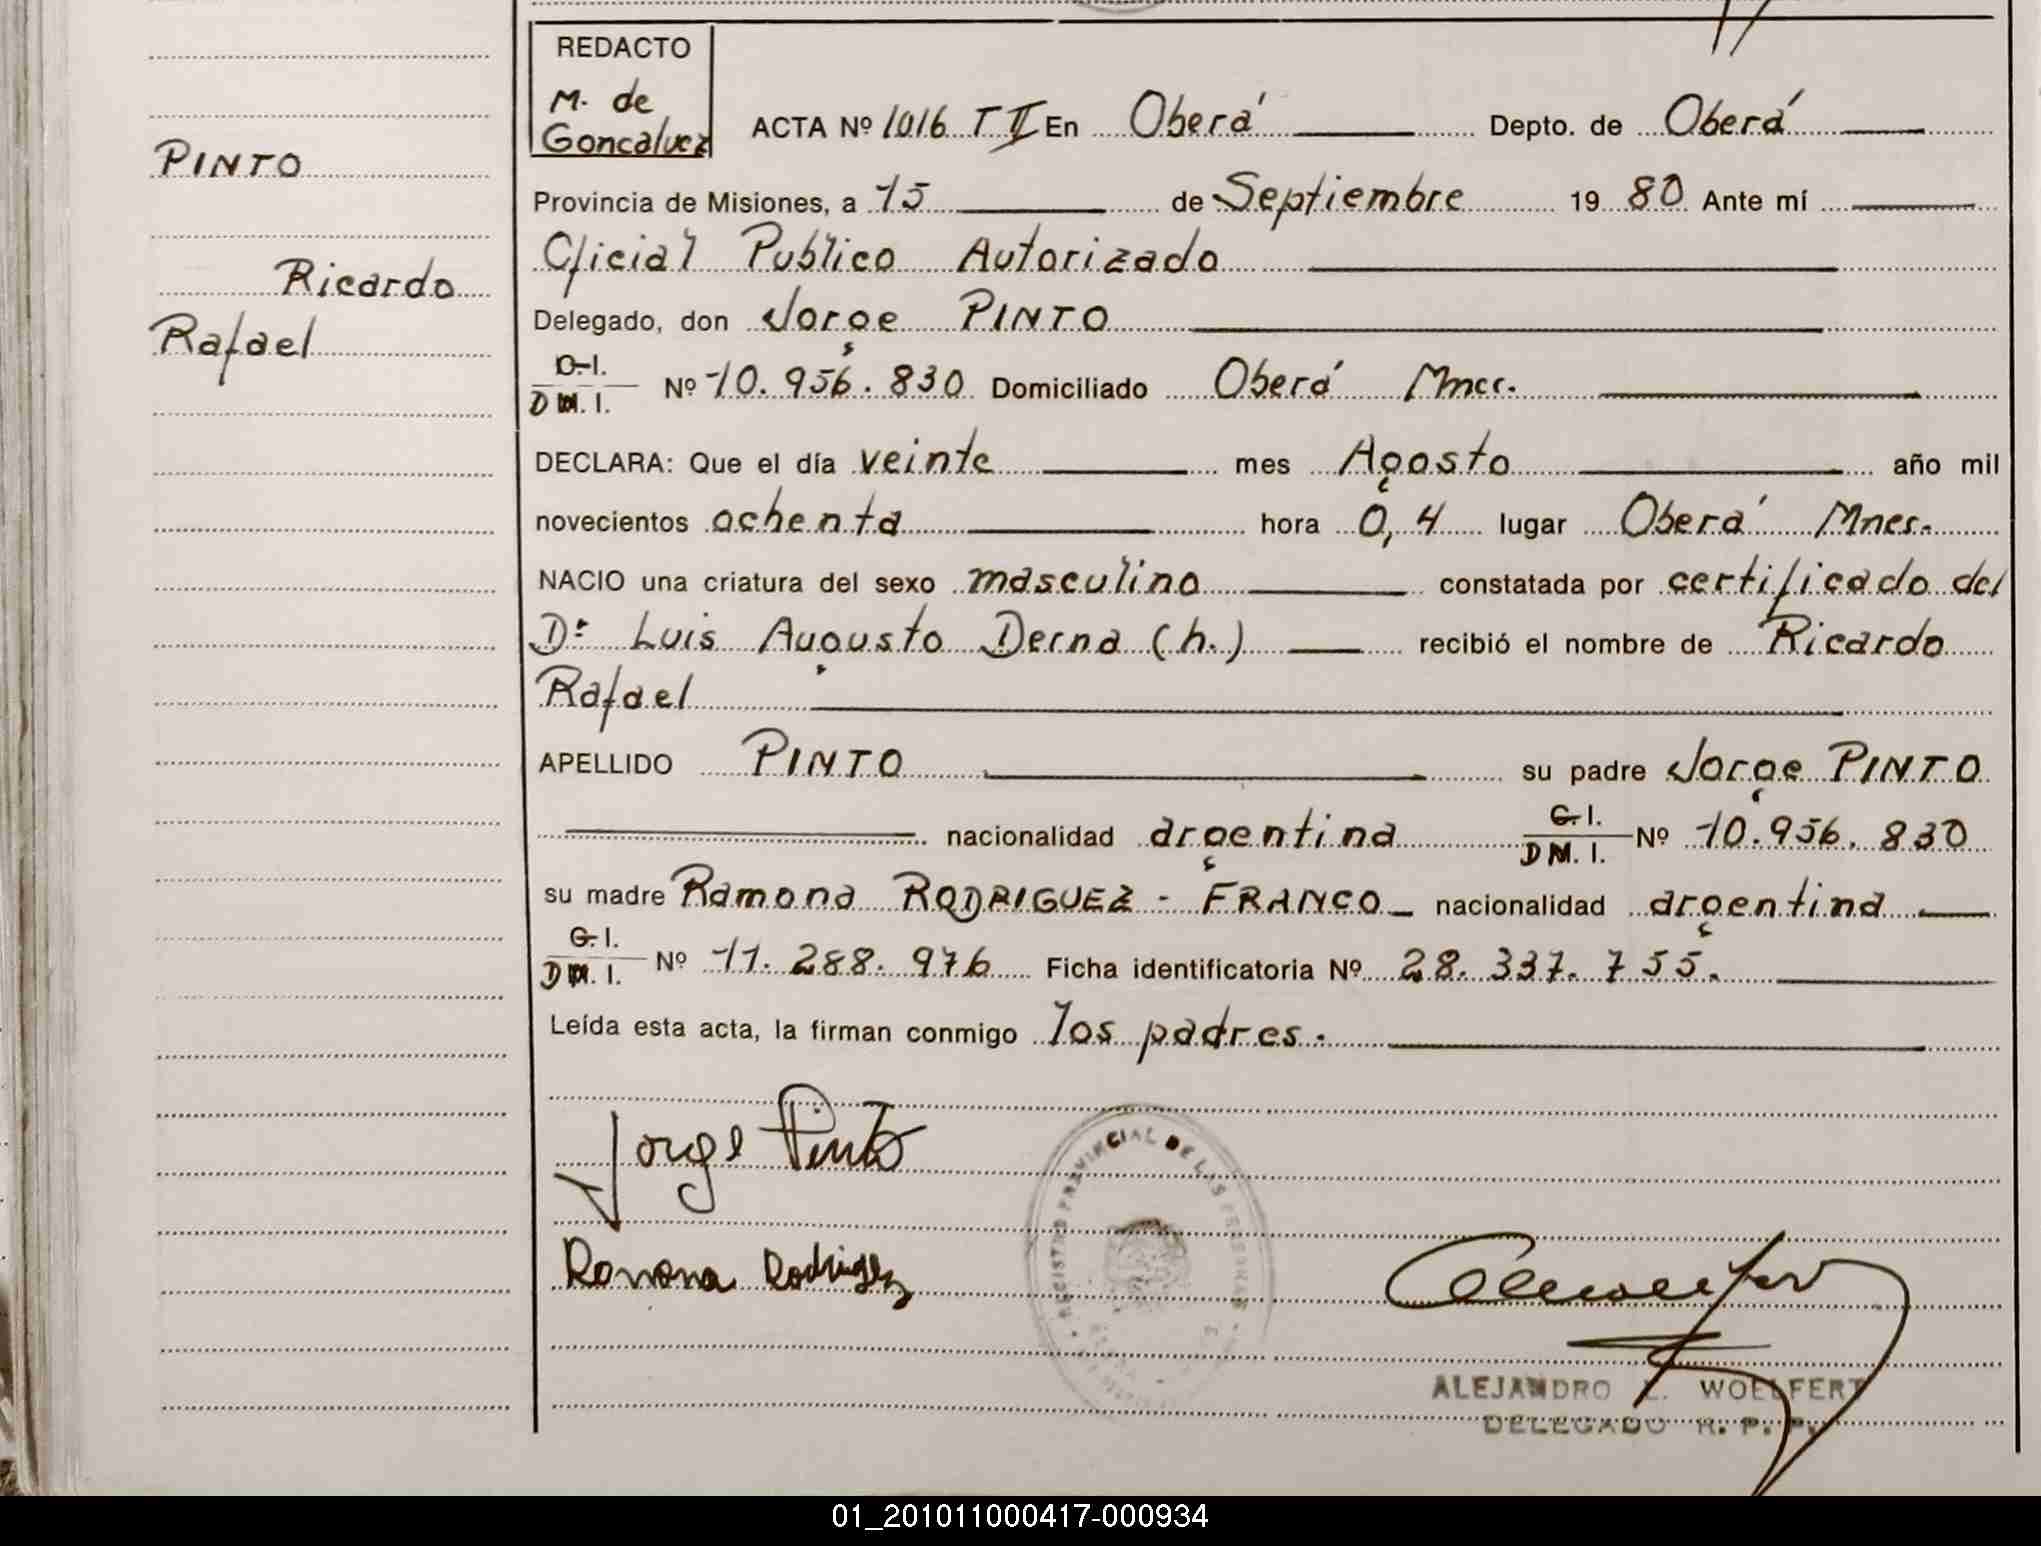 REDACTO
M. de
Goncalvez
ACTA Nº 1016 T II En Oberá Depto. de Oberá
PINTO
Provincia de Misiones, a 15 de Septiembre 19 80 Ante mí
Oficial Publico Autorizado
Ricardo
Rafael
Delegado, don Jorge PINTO
C.I.
D M. I. Nº 10.956.830 Domiciliado Oberá Mnes.
DECLARA: Que el día veinte mes Agosto año mil
novecientos ochenta hora 0,4 lugar Oberá Mnes.
NACIO una criatura del sexo masculino constatada por certificado del
Dr Luis Augusto Derna (h.) recibió el nombre de Ricardo
Rafael
APELLIDO PINTO su padre Jorge PINTO
nacionalidad argentina C.I.
D M. I. Nº 10.956.830
su madre Ramona RODRIGUEZ - FRANCO nacionalidad argentina
C.I.
D M. I. Nº 11.288.976 Ficha identificatoria Nº 28.337.755.
Leída esta acta, la firman conmigo los padres.
Jorge Pinto
REGISTRO PROVINCIAL DE LAS PERSONAS
Ramona Rodriguez
ALEJANDRO L. WOELFERT
DELEGADO R. P. P.
01_201011000417-000934